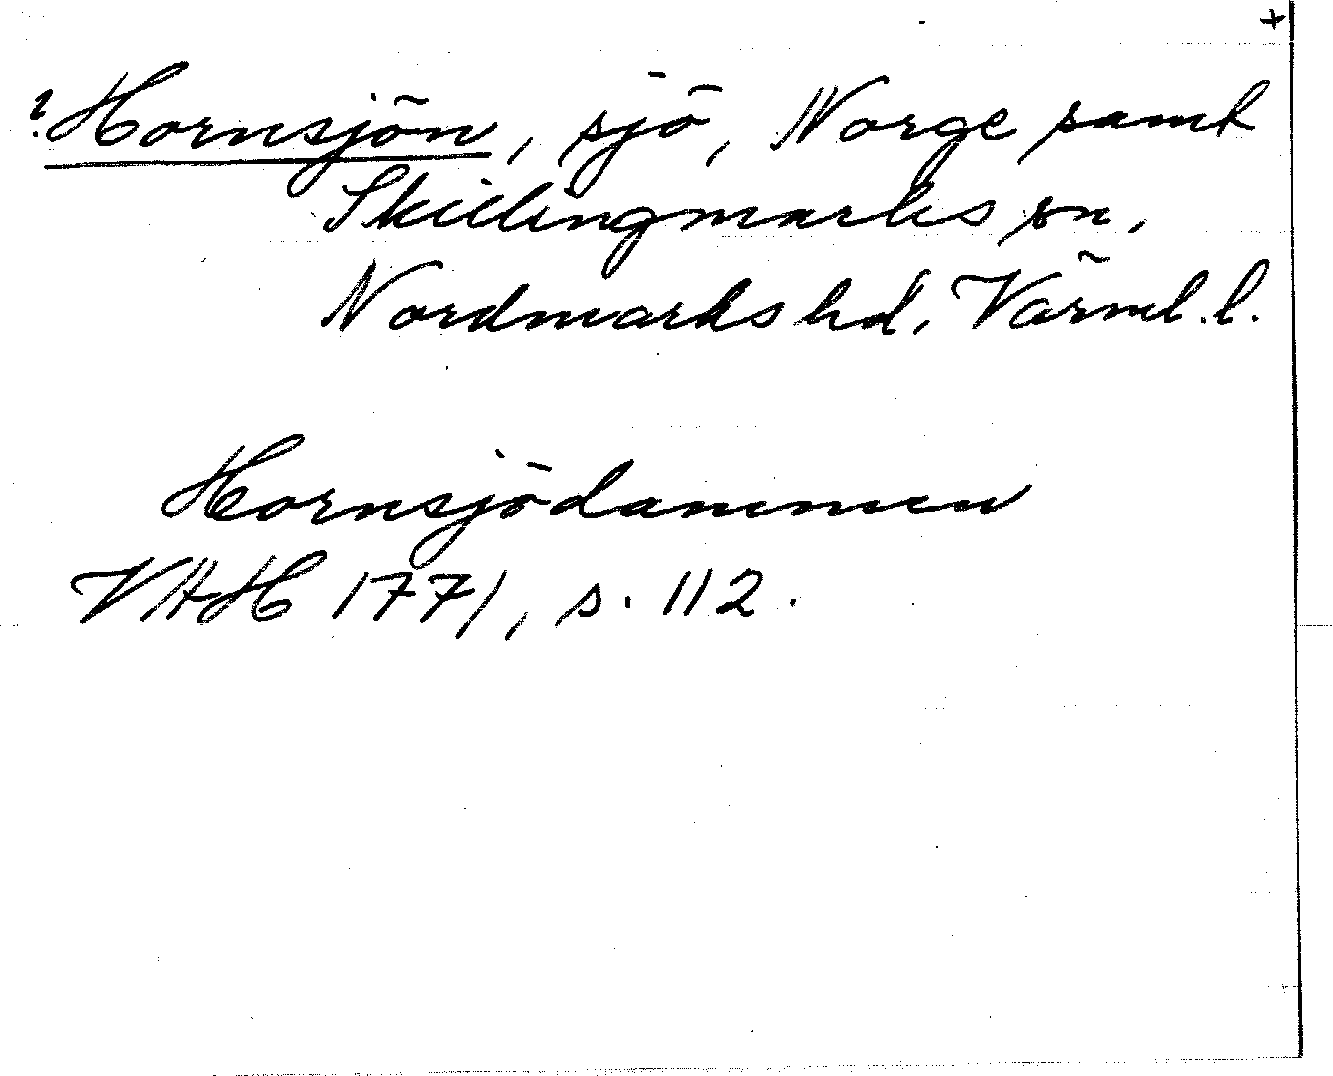 +
? Hornsjön, sjö, Norge samt
Skillingmarks sn,
Nordmarks hd, Värml. l.
Hornsjödammen
VHH 1771, s. 112.